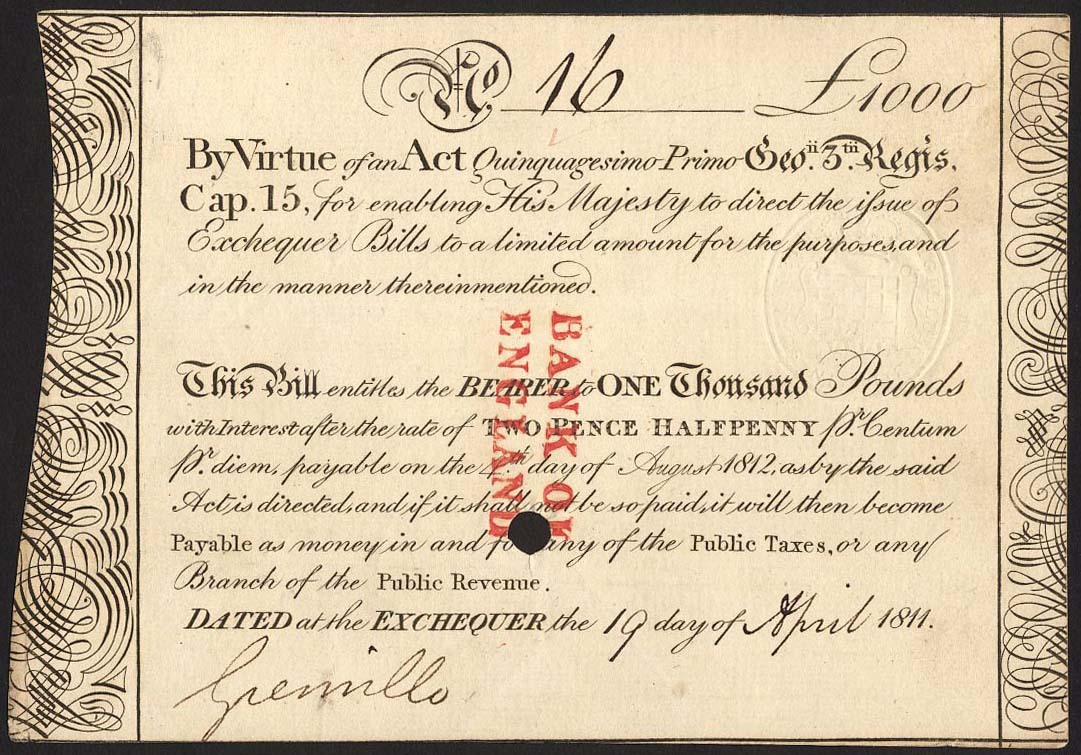 No 16 £1000
By Virtue of an Act Quinquagesimo Primo Geo.ii 3.tii Regis.
Cap. 15, for enabling His Majesty to direct the issue of
Exchequer Bills to a limited amount for the purposes, and
in the manner therein mentioned.
This Bill entitles the BEARER to ONE Thousand Pounds
with Interest after the rate of TWO PENCE HALFPENNY Pr. Centum
Pr. diem, payable on the 4th day of August 1812, as by the said
Act is directed, and if it shall not be so paid, it will then become
Payable as money in and for any of the Public Taxes, or any
Branch of the Public Revenue.
DATED at the EXCHEQUER the 19 day of April 1811.
Grenville
BANK OF
ENGLAND